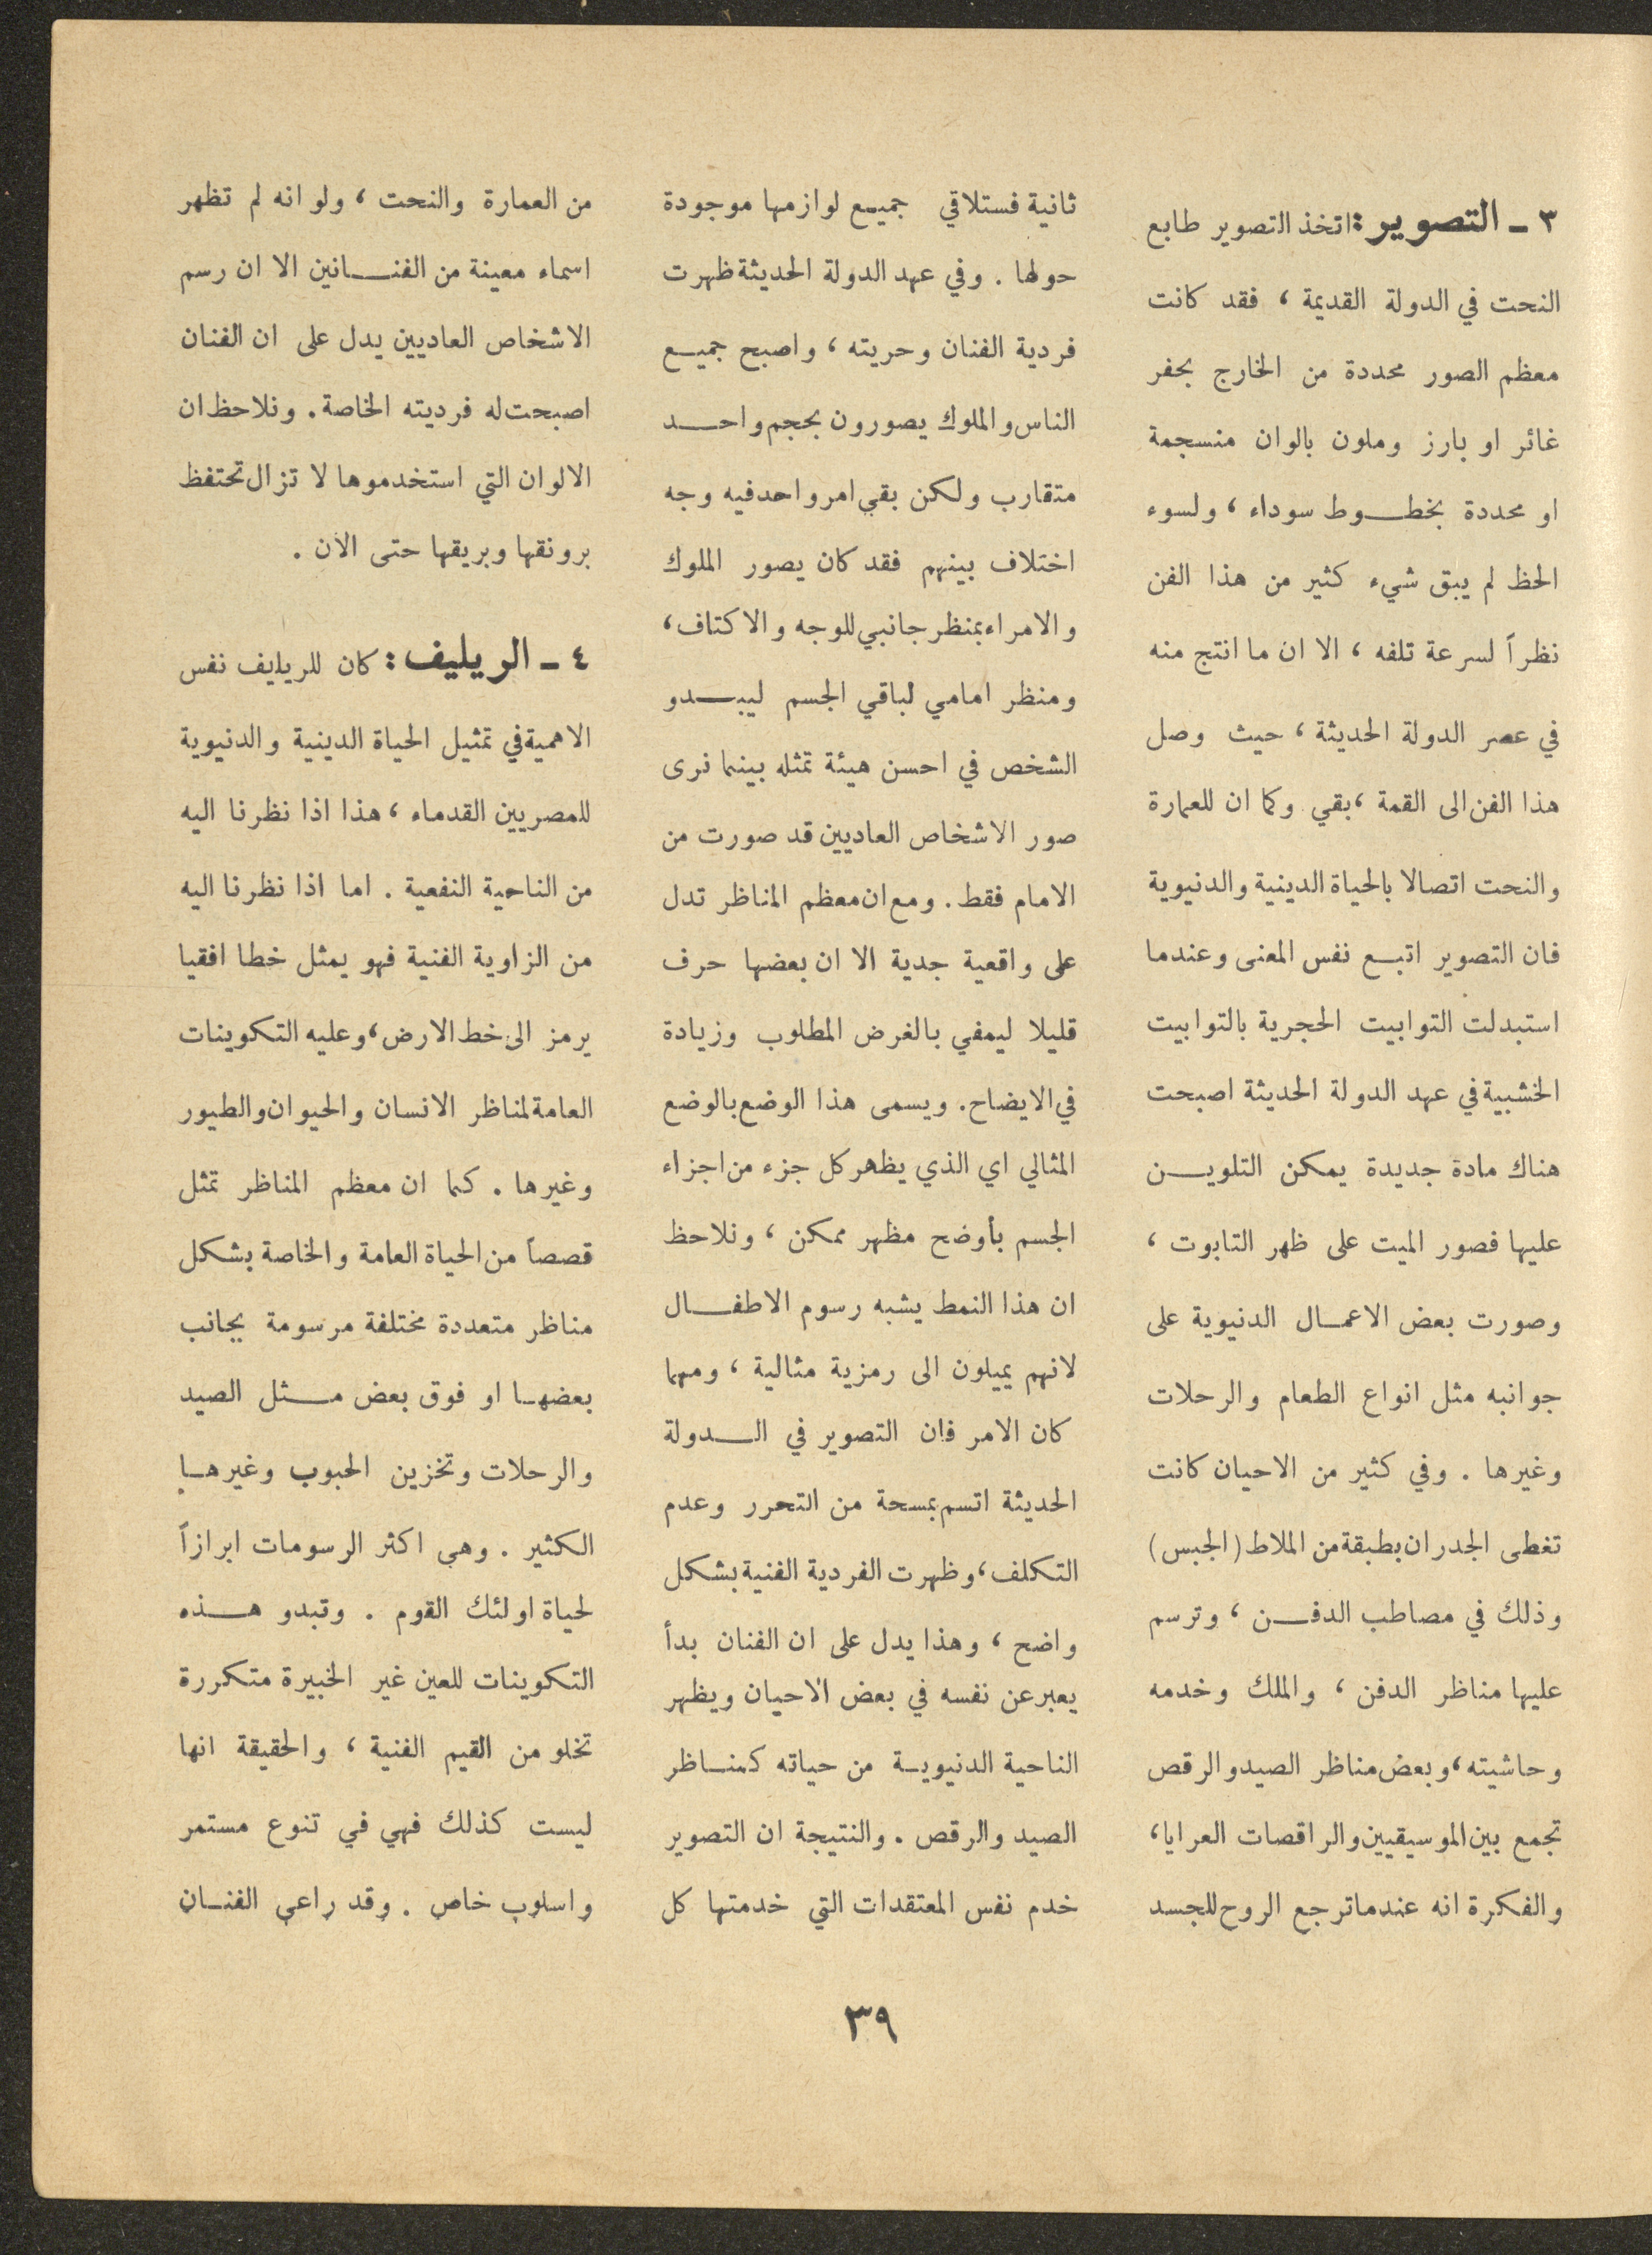 ٣ ـ التصوير : اتخذ التصوير طابع
النحت في الدولة القديمة ، فقد كانت
معظم الصور محددة من الخارج بحفر
غائر او بارز وملون بالوان منسجمة
او محددة بخطوط سوداء ، ولسوء
الحظ لم يبق شيء كثير من هذا الفن
نظراً لسرعة تلفه ، الا ان ما انتج منه
في عصر الدولة الحديثة ، حيث وصل
هذا الفن الى القمة ، بقي وكما ان للعمارة
والنحت اتصالا بالحياة الدينية والدنيوية
فان التصوير اتبع نفس المعنى وعندما
استبدلت التوابيت الحجرية بالتوابيت
الخشبية في عهد الدولة الحديثة اصبحت
هناك مادة جديدة يمكن التلوين
عليها فصور الميت على ظهر التابوت ،
وصورت بعض الاعمال الدنيوية على
جوانبه مثل انواع الطعام والرحلات
وغيرها . وفي كثير من الاحيان كانت
تغطى الجدران بطبقة من الملاط (الجبس)
وذلك في مصاطب الدفن ، وترسم
عليها مناظر الدفن ، والملك وخدمه
وحاشيته ، وبعض مناظر الصيد والرقص
تجمع بين الموسيقيين والراقصات العرايا ،
والفكرة انه عندما ترجع الروح للجسد
ثانية فستلاقي جميع لوازمها موجودة
حولها . وفي عهد الدولة الحديثة ظهرت
فردية الفنان وحريته ، واصبح جميع
الناس والملوك يصورون بحجم واحد
متقارب ولكن بقي امر واحد فيه وجه
اختلاف بينهم فقد كان يصور الملوك
والامراء بمنظر جانبي للوجه والاكتاف ،
ومنظر امامي لباقي الجسم ليبدو
الشخص في احسن هيئة تمثله بينما نرى
صور الاشخاص العاديين قد صورت من
الامام فقط . ومع ان معظم المناظر تدل
على واقعية جدية الا ان بعضها حرف
قليلا ليمفي بالغرض المطلوب وزيادة
في الايضاح . ويسمى هذا الوضع بالوضع
المثالي اي الذي يظهر كل جزء من اجزاء
الجسم بأوضح مظهر ممكن ، ونلاحظ
ان هذا النمط يشبه رسوم الاطفال
لانهم يميلون الى رمزية مثالية ، ومهما
كان الامر فان التصوير في الدولة
الحديثة اتسم بمسحة من التحرر وعدم
التكلف ، وظهرت الفردية الفنية بشكل
واضح ، وهذا يدل على ان الفنان بدأ
يعبر عن نفسه في بعض الاحيان ويظهر
الناحية الدنيوية من حياته كمناظر
الصيد والرقص . والنتيجة ان التصوير
خدم نفس المعتقدات التي خدمتها كل
من العمارة والنحت ، ولو انه لم تظهر
اسماء معينة من الفنانين الا ان رسم
الاشخاص العاديين يدل على ان الفنان
اصبحت له فرديته الخاصة . ونلاحظ ان
الالوان التي استخدموها لا تزال تحتفظ
برونقها وبريقها حتى الآن .
٤ ـ الريليف : كان للريليف نفس
الاهمية في تمثيل الحياة الدينية والدنيوية
للمصريين القدماء ، هذا اذا نظرنا اليه
من الناحية النفعية . اما اذا نظرنا اليه
من الزاوية الفنية فهو يمثل خطا افقيا
يرمز الى خط الارض ، وعليه التكوينات
العامة لمناظر الانسان والحيوان والطيور
وغيرها . كما ان معظم المناظر تمثل
قصصاً من الحياة العامة والخاصة بشكل
مناظر متعددة مختلفة مرسومة بجانب
بعضها او فوق بعض مثل الصيد
والرحلات وتخزين الحبوب وغيرها
الكثير . وهي اكثر الرسومات ابرازاً
لحياة اولئك القوم . وتبدو هذه
التكوينات للعين غير الخبيرة متكررة
تخلو من القيم الفنية ، والحقيقة انها
ليست كذلك فهي في تنوع مستمر
واسلوب خاص . وقد راعى الفنان
٣٩